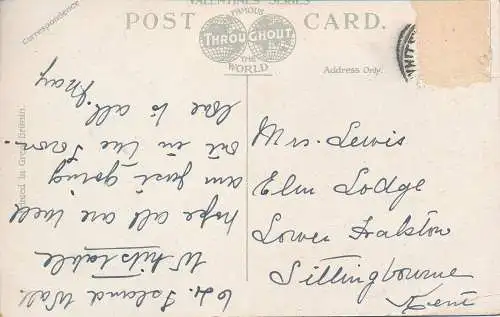 VALENTINES SERIES
POST CARD.
FAMOUS
THROUGHOUT
THE
WORLD
Correspondence
Address Only.
Printed in Great Britain.
64. Island Wall
Whitstable
hope all are well
am just going
out in the Town.
Love to all.
May
Mrs. Lewis
Elm Lodge
Lower Halstow
Sittingbourne
Kent
WHITST